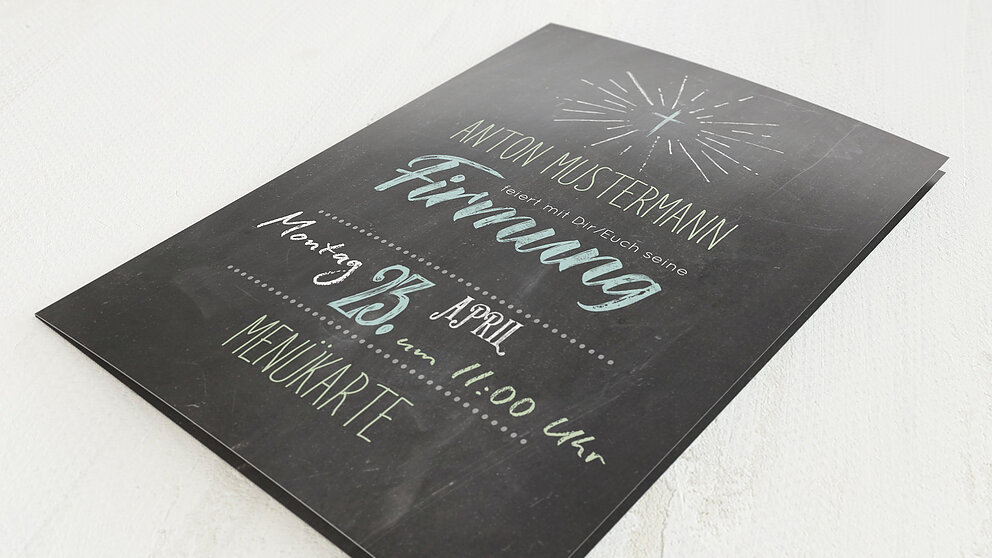 ANTON MUSTERMANN
feiert mit Dir/Euch seine
Firmung
Montag 23. APRIL
um 11:00 Uhr
MENÜKARTE